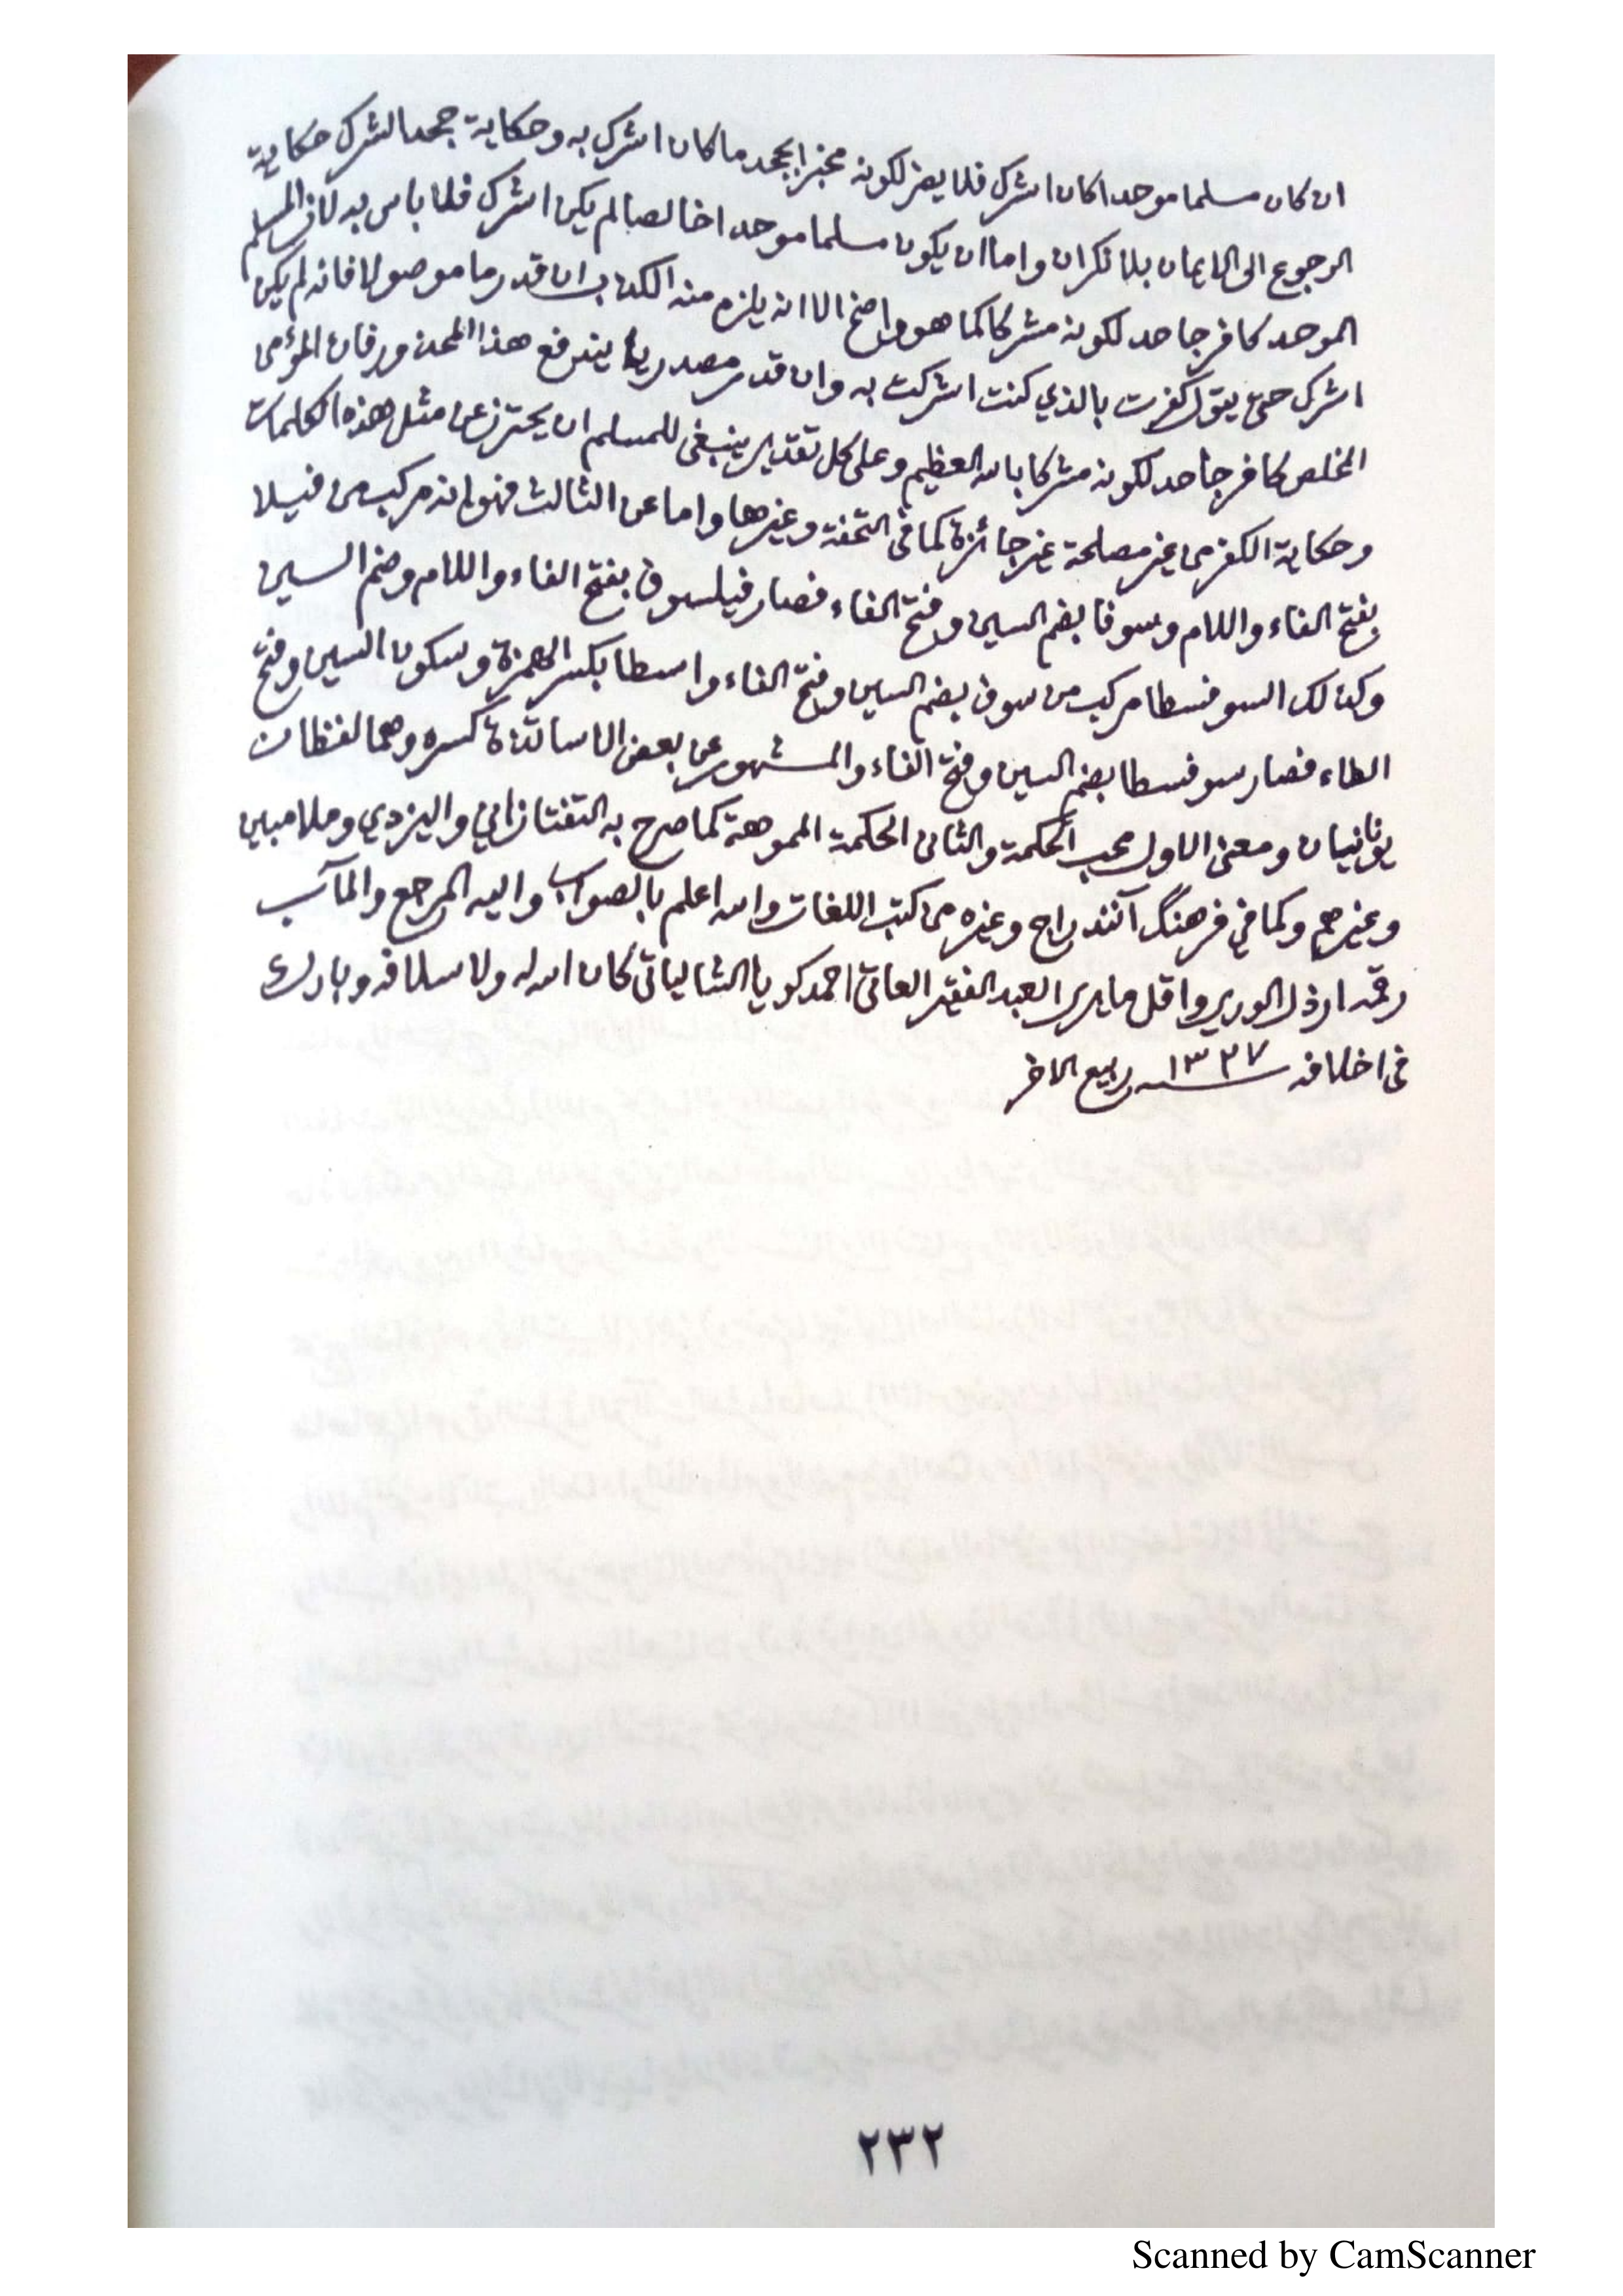 ان كان مسلما موحدا كان اشرك فلا يضر لكونه مخبرا بجحد ما كان اشرك به وحكاية جحد الشرك حكاية
الرجوع الى الايمان بلا نكران واما ان يكون مسلما موحدا خالصا لم يكن اشرك فلا باس به لان المسلم
الموحد كافر جاحد لكونه مشركا كما هو واضح الا انه يلزم منه الكذب ان قدر ما موصولا فانه لم يكن
اشرك حتى يقول كفرت بالذي كنت اشركت به وان قدر مصدريا يندفع هذا المحذور فان المؤمن
المخلص كافر جاحد لكونه مشركا بالله العظيم وعلى كل تقدير ينبغي للمسلم ان يحترز عن مثل هذه الكلمات
وحكاية الكفر من غير مصلحة غير جائزة كما في التحفة وغيرها واما عن الثالث فهو انه مركب من فيلا
بفتح الفاء واللام وسوفا بضم السين وفتح الفاء فصار فيلسوف بفتح الفاء واللام وضم السين
وكذلك السوفسطا مركب من سوف بضم السين وفتح الفاء واسطا بكسر الهمزة وسكون السين وفتح
الطاء فصار سوفسطا بضم السين وفتح الفاء والمشهور عن بعض الاساتذة كسره وهما لفظان
يونانيان ومعنى الاول محب الحكمة والثاني الحكمة المموهة كما صرح به التفتازاني واليزدي وملا مبين
وغيرهم وكما في فرهنگ آنند راج وغيره من كتب اللغات والله اعلم بالصواب واليه المرجع والمآب
رقمه ارذل الورى واقل ما يرى العبد الفقير العاتي احمد كويا الشالياتي كان الله له ولاسلافه وبارك
في اخلافه ١٣٢٧ ربيع الاخر
٢٣٢
Scanned by CamScanner